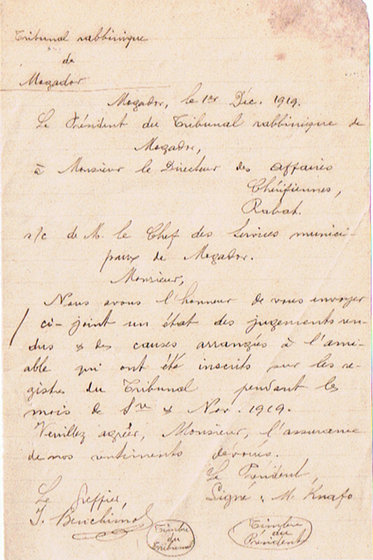 Tribunal rabbinique
de
Mogador
Mogador, le 1er Déc. 1919.
Le Président du Tribunal rabbinique de
Mogador,
à Monsieur le Directeur des affaires
Chérifiennes,
Rabat.
s/c de M. le Chef des Services munici-
paux de Mogador.
Monsieur,
Nous avons l'honneur de vous envoyer
ci-joint un état des jugements ren-
dus & des causes arrangées à l'ami-
able qui ont été inscrits sur les re-
gistres du Tribunal pendant les
mois de & Nov. 1919.
Veuillez agréer, Monsieur, l'assurance
de nos sentiments dévoués.
Le Président,
Signé : M. Knafo
Le Greffier
J. Benchimol
Timbre
du
Tribunal
Timbre
du
Président